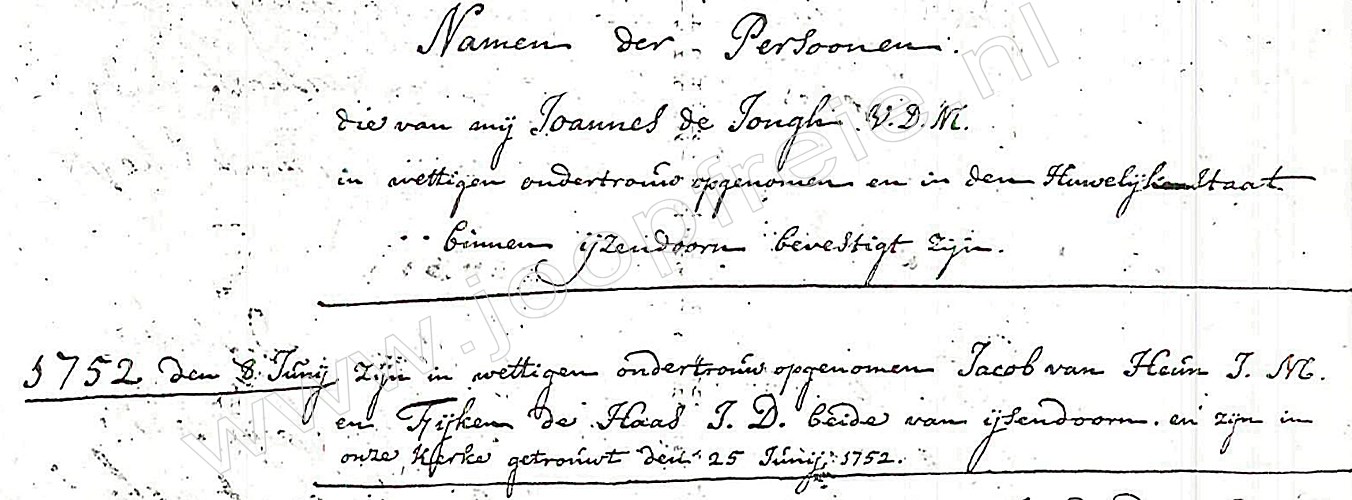 Namen der Persoonen.
die van mij Joannes de Jongh V.D.M.
in wettigen ondertrouw opgenomen en in den Huwelijken Staat
binnen ijzendoorn bevestigt zijn.
1752 den 8 Junij zijn in wettigen ondertrouw opgenomen Jacob van Heun J. M.
en Fijken de Haas J. D. beide van ijsendoorn. en zijn in
onze Kerke getrouwt den 25 Junij 1752.
www.joopfreie.nl